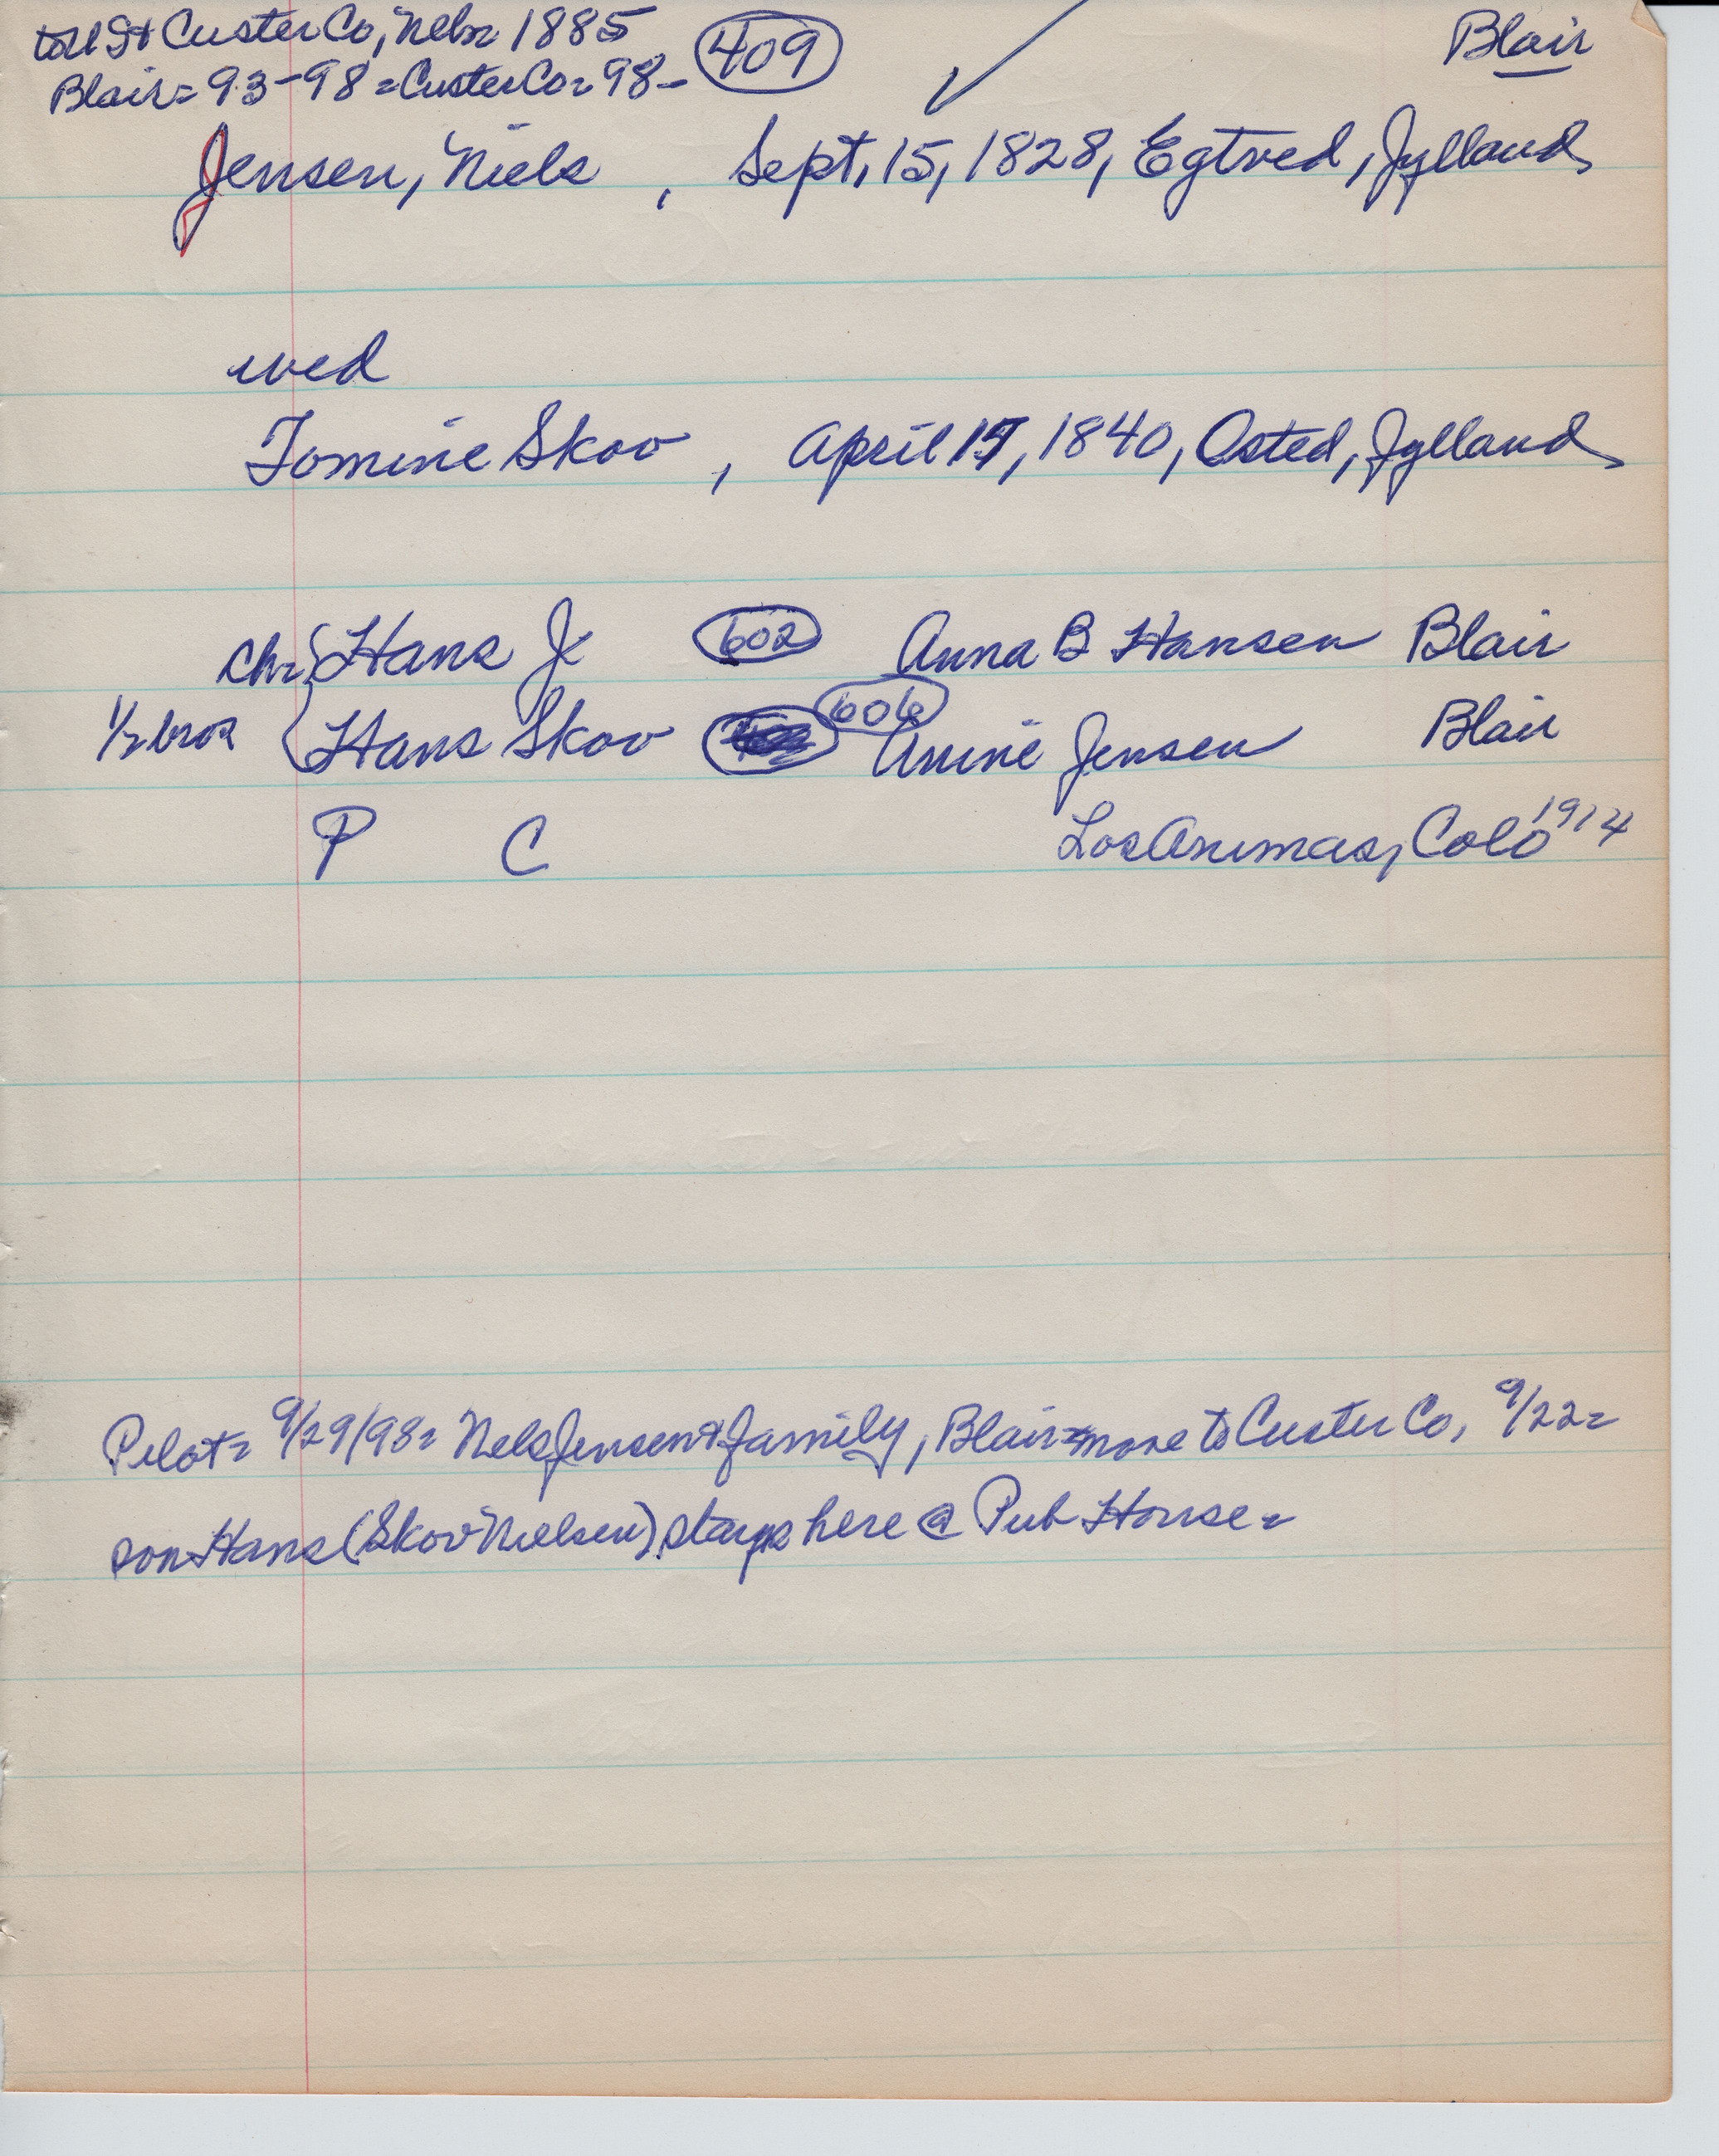 to U St Custer Co, Nebr 1885
Blair = 93-98 = Custer Co = 98-
409
Blair
Jensen, Niels , Sept, 15, 1828, Egtved, Jylland
wed
Tomine Skov , April , 1840, Osted, Jylland
chr Hans J 602 Anna B Hansen Blair
1/2 bros Hans Skov 606 Anine Jensen Blair
P C Los Animas, Colo 1914
Pilot = 9/29/98 = Nels Jensen & family, Blair = move to Custer Co, 9/22 =
son Hans (Skov Nielsen) stays here @ Pub House =